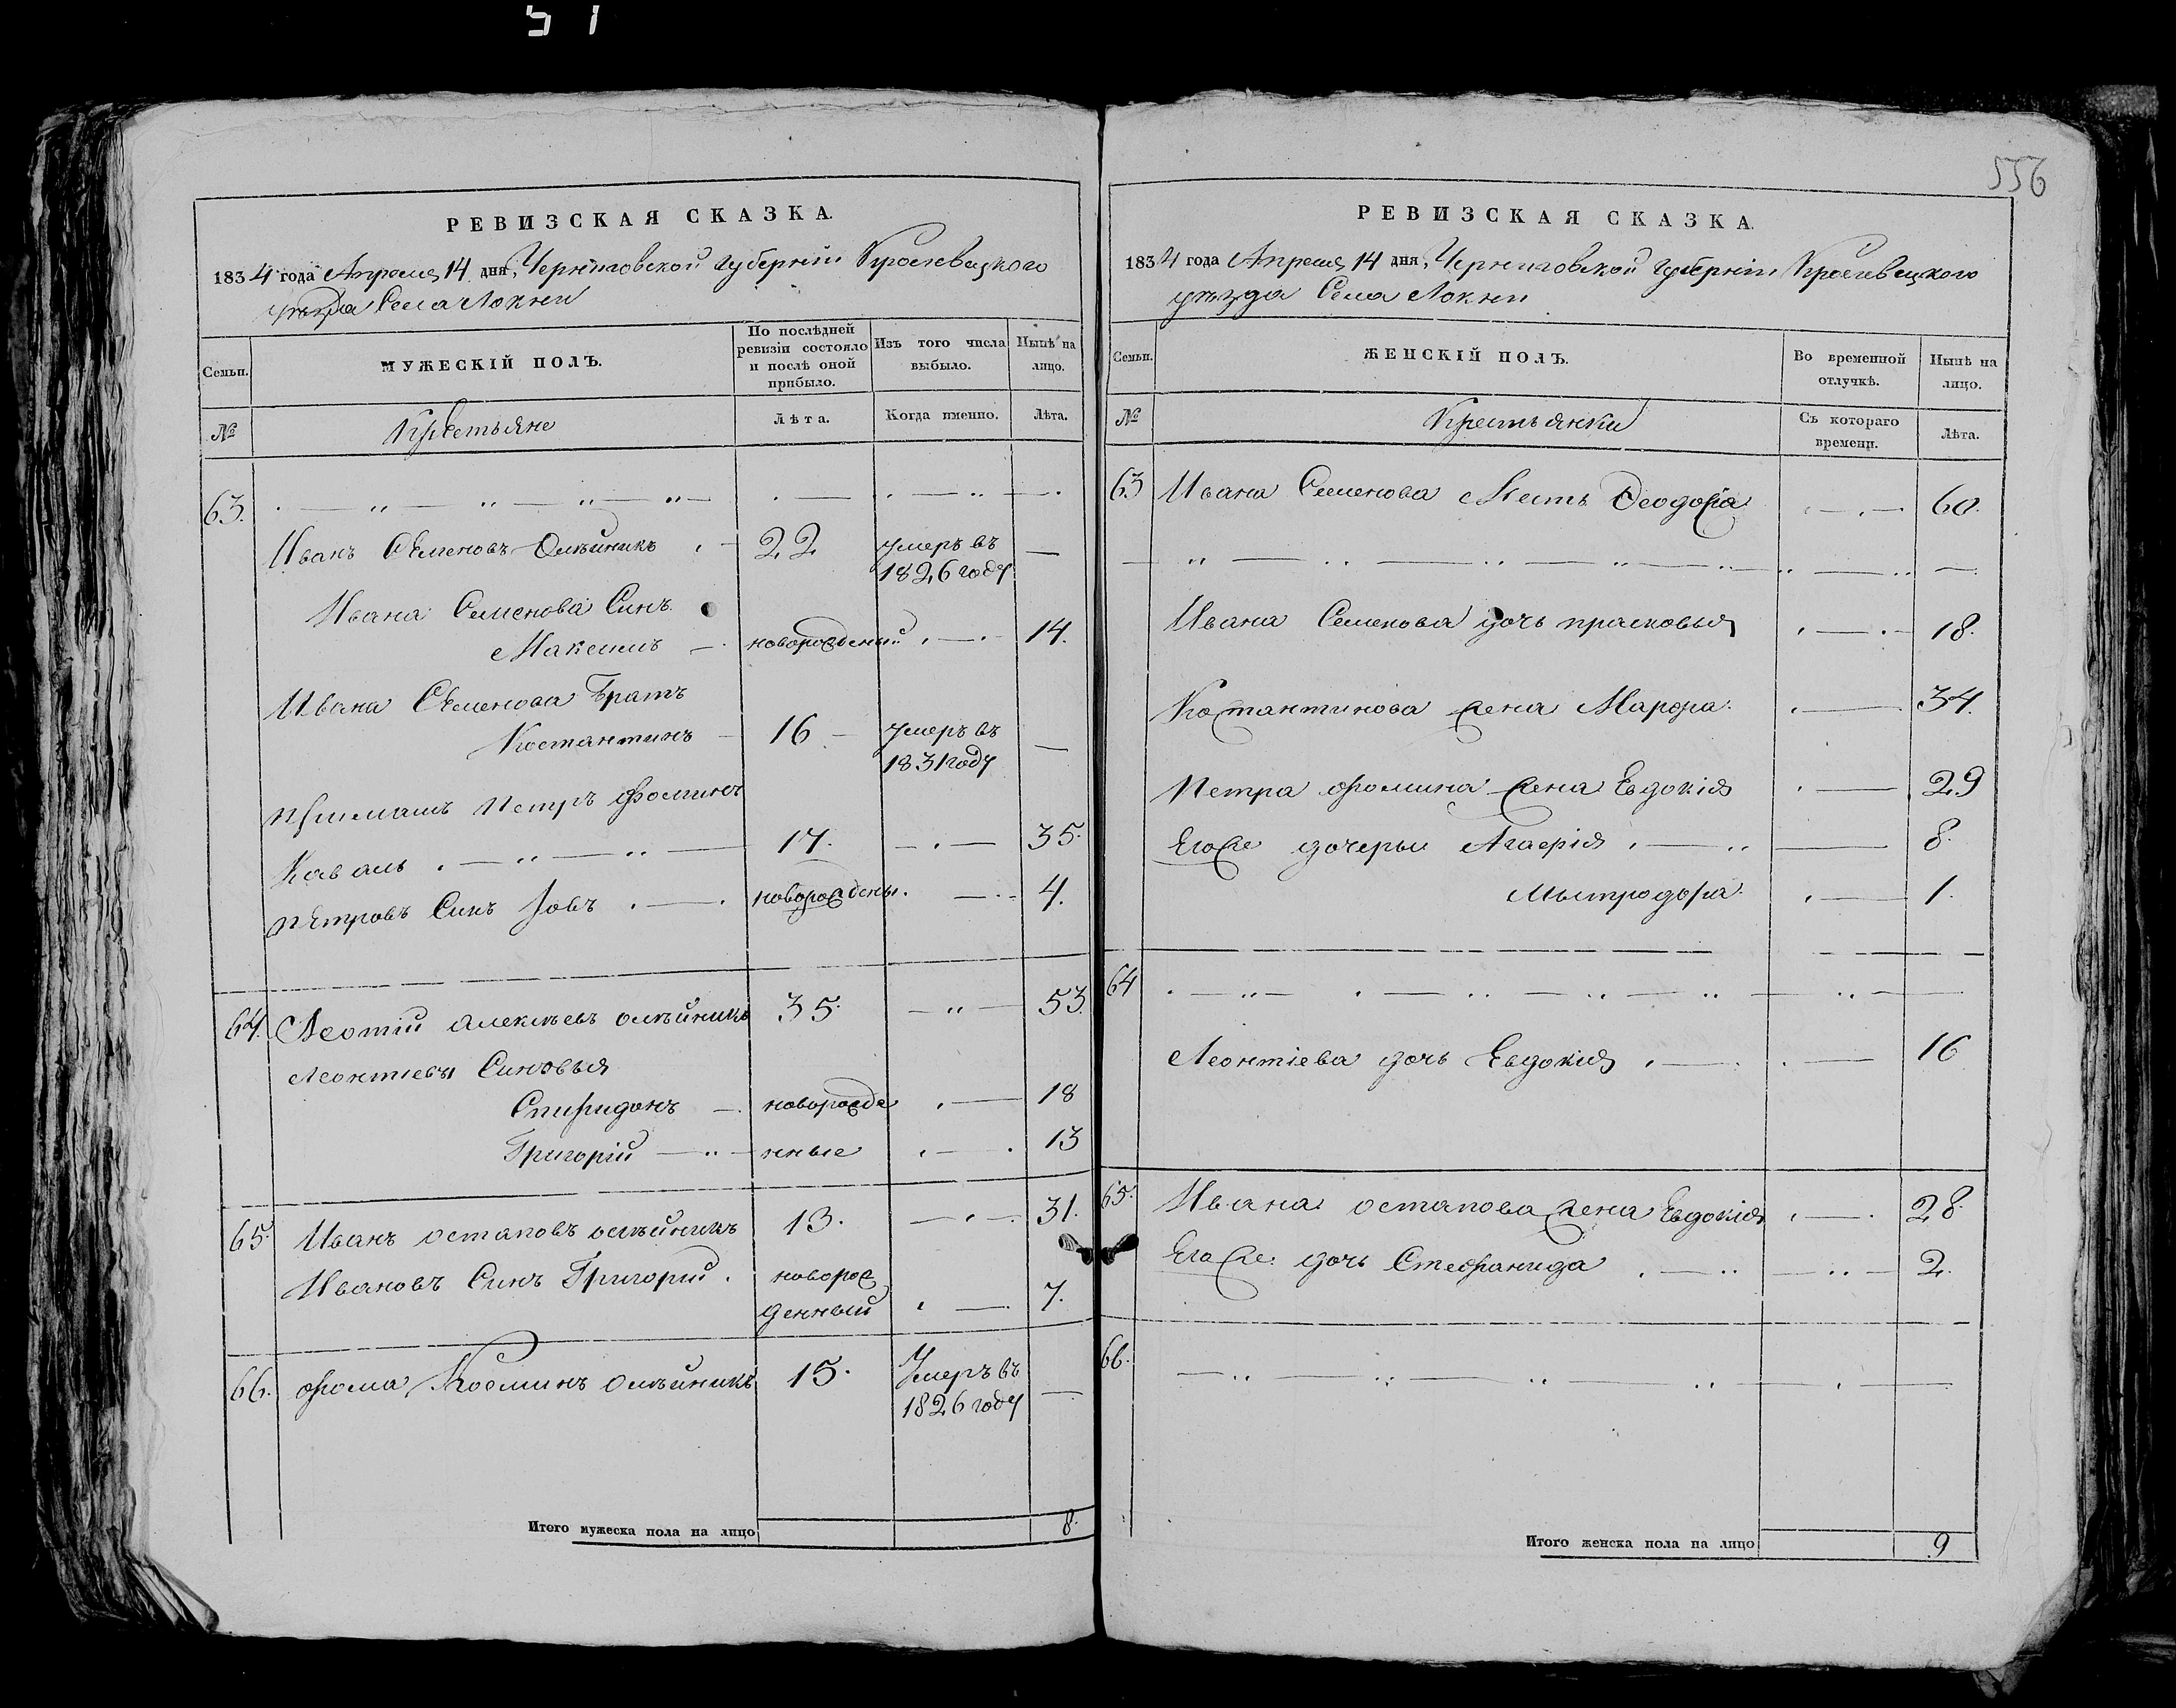 51
РЕВИЗСКАЯ СКАЗКА.
1834 года Апреля 14 дня, Черниговской губернии Кролевецкого
уезда Села Локни
Семьи.
МУЖЕСКІЙ ПОЛЪ.
По послѣдней ревизіи состояло и послѣ оной прибыло.
Изъ того числа выбыло.
Нынѣ на лицо.
№
Крестьяне
Лѣта.
Когда именно.
Лѣта.
63.
Иванъ Семеновъ Олѣйникъ 22 умеръ въ
1826 году
Ивана Семенова Синъ
Максимъ новорожденый 14.
Ивана Семенова Братъ
Костантинъ 16 умеръ въ
1831 году
Приймашъ Петръ Фоминъ
Коваль 17. 35.
Петровъ Синъ Іовъ новорождены. 4.
64. Леотій Алексѣевъ олѣйникъ 35. 53.
Леонтіевы Синовья
Спиридонъ новорожде 18
Григорій нные 13
65. Иванъ остаповъ олѣйникъ 13. 31.
Ивановъ Синъ Григорій новорож
денный 7.
66. Фома Косминъ Олѣйникъ 15. Умеръ въ
1826 году
Итого мужеска пола на лицо 8.
556
РЕВИЗСКАЯ СКАЗКА.
1834 года Апреля 14 дня, Черниговской губерніи Кролевецкого
уѣзда Села Локни
Семьи.
ЖЕНСКІЙ ПОЛЪ.
Во временной отлучкѣ.
Нынѣ на лицо.
№
Крестьянки
Съ котораго времени.
Лѣта.
63 Ивана Семенова Мать Феодора 60.
Ивана Семенова дочь прасковья 18.
Костантинова жена Марфа 34.
Петра фомина жена Евдокія 29
Егоже дочеры Агафія 8.
Мытродора 1.
64
Леонтіева дочь Евдокия 16
65. Ивана остапова жена Евдокія 28.
Егоже дочь Стефанида 2.
66.
Итого женска пола на лицо 9